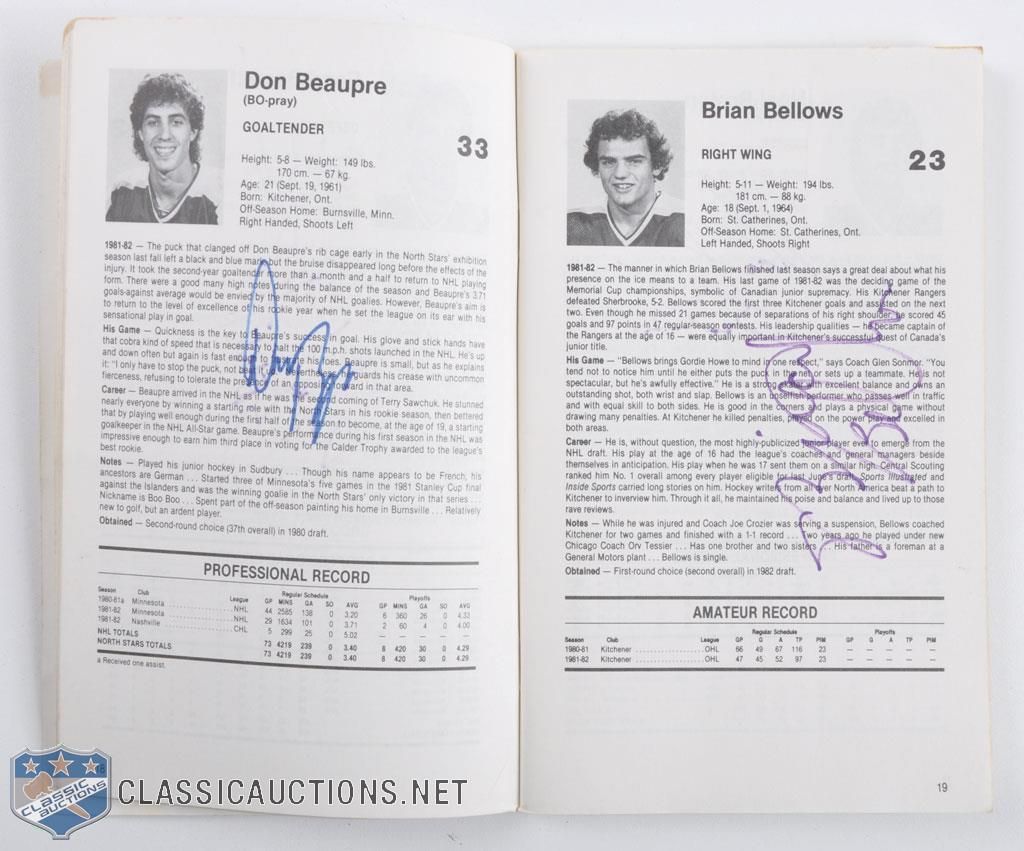 Don Beaupre
(BO-pray)
GOALTENDER
33
Height: 5-8 — Weight: 149 lbs.
170 cm. — 67 kg.
Age: 21 (Sept. 19, 1961)
Born: Kitchener, Ont.
Off-Season Home: Burnsville, Minn.
Right Handed, Shoots Left
1981-82 — The puck that clanged off Don Beaupre's rib cage early in the North Stars' exhibition
season last fall left a black and blue mark but the bruise disappeared long before the effects of the
injury. It took the second-year goaltender more than a month and a half to return to NHL playing
form. There were a good many high during the balance of the season and Beaupre's 3.71
goals-against average would be envied by the majority of NHL goalies. However, Beaupre's aim is
to return to the level of excellence of his rookie year when he set the league on its ear with his
sensational play in goal.
His Game — Quickness is the key to Beaupre's success in goal. His glove and stick hands have
that cobra kind of speed that is necessary to halt the 100 m.p.h. shots launched in the NHL. He's up
and down often but again is fast his toes. Beaupre is small, but as he explains
it: "I only have to stop the puck, not beat it guards his crease with uncommon
fierceness, refusing to tolerate the presence of an opposing forward in that area.
Career — Beaupre arrived in the NHL as if he was the second coming of Terry Sawchuk. He stunned
nearly everyone by winning a starting role with the North Stars in his rookie season, then bettered
that by playing well enough during the first half of the season to become, at the age of 19, a starting
goalkeeper in the NHL All-Star game. Beaupre's performance during his first season in the NHL was
impressive enough to earn him third place in voting for the Calder Trophy awarded to the league's
best rookie.
Notes — Played his junior hockey in Sudbury . . . Though his name appears to be French, his
ancestors are German . . . Started three of Minnesota's five games in the 1981 Stanley Cup final
against the Islanders and was the winning goalie in the North Stars' only victory in that series . . .
Nickname is Boo Boo . . . Spent part of the off-season painting his home in Burnsville . . . Relatively
new to golf, but an ardent player.
Obtained — Second-round choice (37th overall) in 1980 draft.
PROFESSIONAL RECORD
Regular Schedule Playoffs
Season Club League GP MINS GA SO AVG GP MINS GA SO AVG
1980-81a Minnesota NHL 44 2585 138 0 3.20 6 360 26 0 4.33
1981-82 Minnesota NHL 29 1634 101 0 3.71 2 60 4 0 4.00
1981-82 Nashville CHL 5 299 25 0 5.02 — — — — —
NHL TOTALS 73 4219 239 0 3.40 8 420 30 0 4.29
NORTH STARS TOTALS 73 4219 239 0 3.40 8 420 30 0 4.29
a Received one assist.
18
Brian Bellows
RIGHT WING
23
Height: 5-11 — Weight: 194 lbs.
181 cm. — 88 kg.
Age: 18 (Sept. 1, 1964)
Born: St. Catherines, Ont.
Off-Season Home: St. Catherines, Ont.
Left Handed, Shoots Right
1981-82 — The manner in which Brian Bellows finished last season says a great deal about what his
presence on the ice means to a team. His last game of 1981-82 was the deciding game of the
Memorial Cup championships, symbolic of Canadian junior supremacy. His Kitchener Rangers
defeated Sherbrooke, 5-2. Bellows scored the first three Kitchener goals and assisted on the next
two. Even though he missed 21 games because of separations of his right shoulder, he scored 45
goals and 97 points in 47 regular-season contests. His leadership qualities — he became captain of
the Rangers at the age of 16 — were equally important in Kitchener's successful quest of Canada's
junior title.
His Game — "Bellows brings Gordie Howe to mind in one respect," says Coach Glen Sonmor. "You
tend not to notice him until he either puts the puck in the net or sets up a teammate. He is not
spectacular, but he's awfully effective." He is a strong skater with excellent balance and owns an
outstanding shot, both wrist and slap. Bellows is an unselfish performer who passes well in traffic
and with equal skill to both sides. He is good in the corners and plays a physical game without
drawing many penalties. At Kitchener he killed penalties, played on the power play and excelled in
both areas.
Career — He is, without question, the most highly-publicized junior player ever to emerge from the
NHL draft. His play at the age of 16 had the league's coaches and general managers beside
themselves in anticipation. His play when he was 17 sent them on a similar high. Central Scouting
ranked him No. 1 overall among every player eligible for last June's draft. Sports Illustrated and
Inside Sports carried long stories on him. Hockey writers from all over North America beat a path to
Kitchener to inverview him. Through it all, he maintained his poise and balance and lived up to those
rave reviews.
Notes — While he was injured and Coach Joe Crozier was serving a suspension, Bellows coached
Kitchener for two games and finished with a 1-1 record . . . Two years ago he played under new
Chicago Coach Orv Tessier . . . Has one brother and two sisters . . . His father is a foreman at a
General Motors plant . . . Bellows is single.
Obtained — First-round choice (second overall) in 1982 draft.
AMATEUR RECORD
Regular Schedule Playoffs
Season Club League GP G A TP PIM GP G A TP PIM
1980-81 Kitchener OHL 66 49 67 116 23 — — — — —
1981-82 Kitchener OHL 47 45 52 97 23 — — — — —
19
CLASSIC
AUCTIONS
CLASSICAUCTIONS.NET